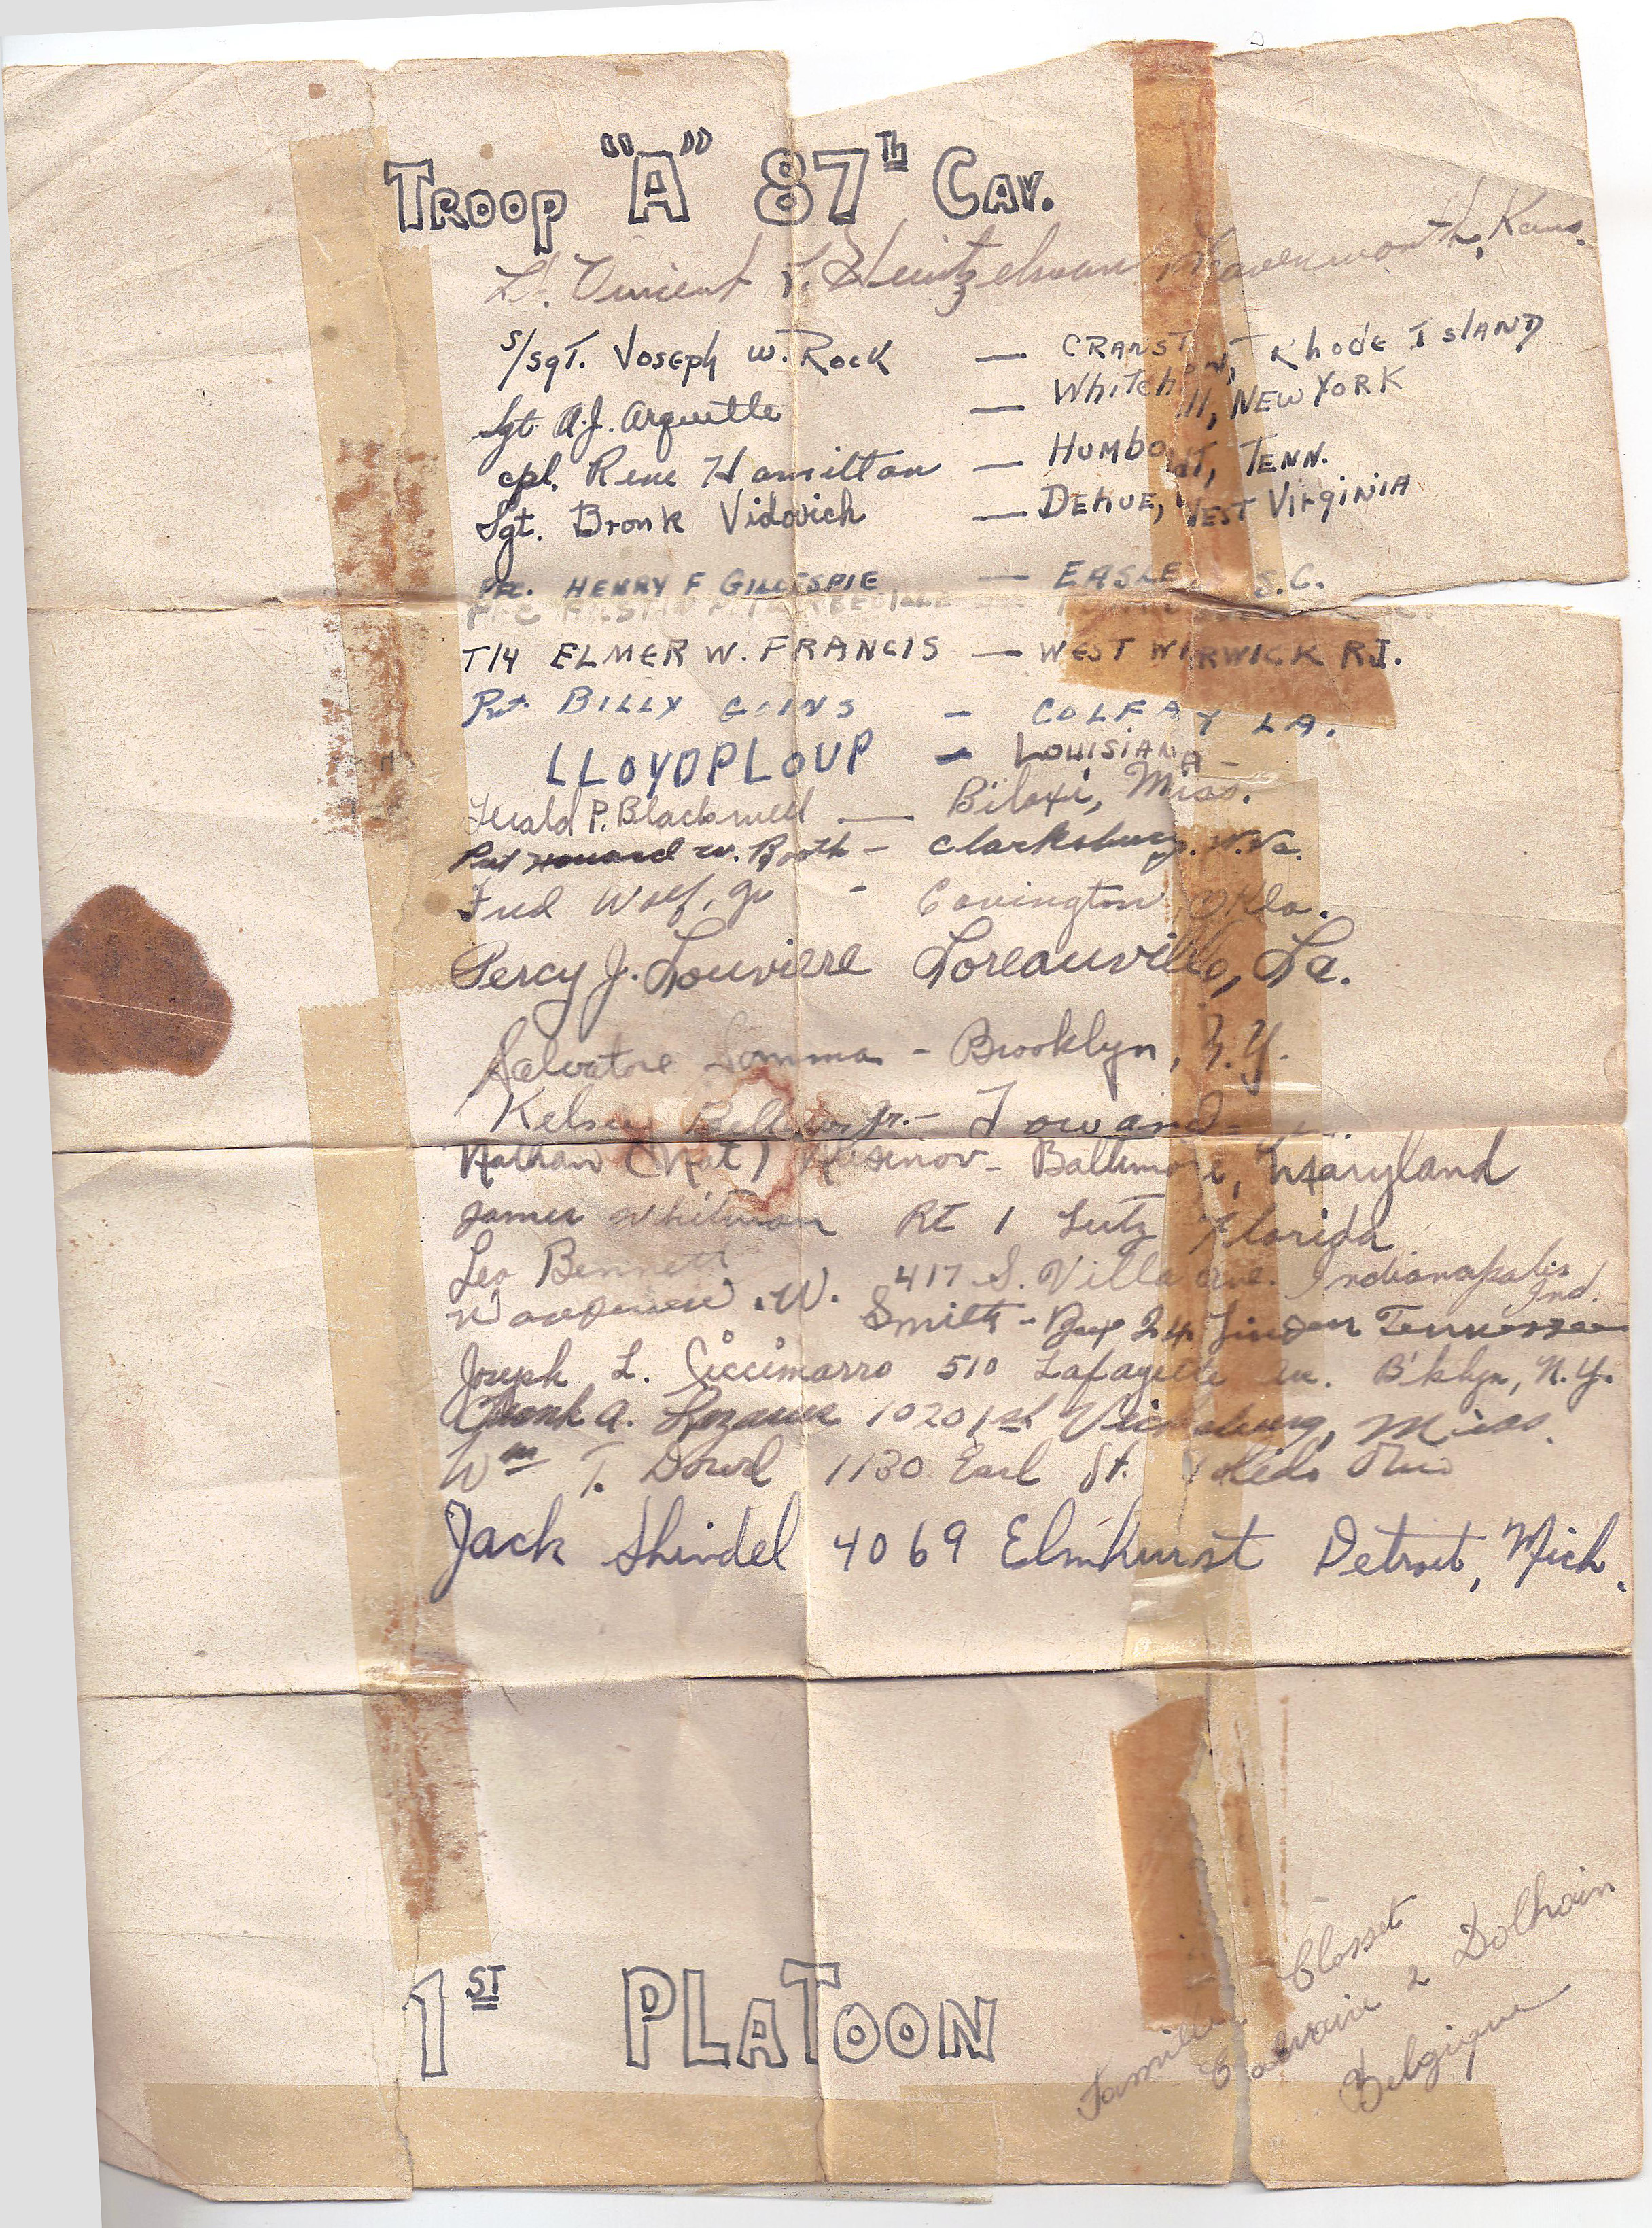 TROOP "A" 87th CAV.
Lt. Vincent J. Heintzelman, Leavenworth, Kans.
S/SgT. Joseph W. Rock — CRANSTON, Rhode ISLAND
Sgt A.J. Arquette — Whitehall, NEW YORK
cpl. Rene Hamilton — HUMBOLDT, TENN.
Sgt. Bronk Vidovich — DEHUE, WEST VIRGINIA
PFC. HENRY F GILLESPIE — EASLEY S.C.
PFC
T/4 ELMER W. FRANCIS — WEST WARWICK R.I.
Pvt. BILLY GOINS - COLFAX LA.
LLOYD P LOUP - LOUISIANA -
Jerald P. Blackwell — Biloxi, Miss.
Pvt Howard W. Booth - Clarksburg. W.Va.
Fred Wolf, Jr - Covington Okla.
Percy J. Louviere Loreauville, La.
Salvatore Somma - Brooklyn, N.Y.
Kelsey Jr. -
Nathan (Nat) - Baltimore, Maryland
James Whitman Rt 1 Lutz Florida
Leo Bennett 417 S. Villa Ave. Indianapolis Ind.
W. Smith - Box 24 Linden Tennessee
Joseph L. Ciccimarro 510 Lafayette Av. B'klyn, N.Y.
Frank A. 1020 1st Vicksburg, Miss.
Wm T. Dowd 1130 Earl St. Toledo Ohio
Jack Shindel 4069 Elmhurst Detroit, Mich.
1ST PLATOON
Famille Closset
Calvaire 2 Dolhain
Belgique